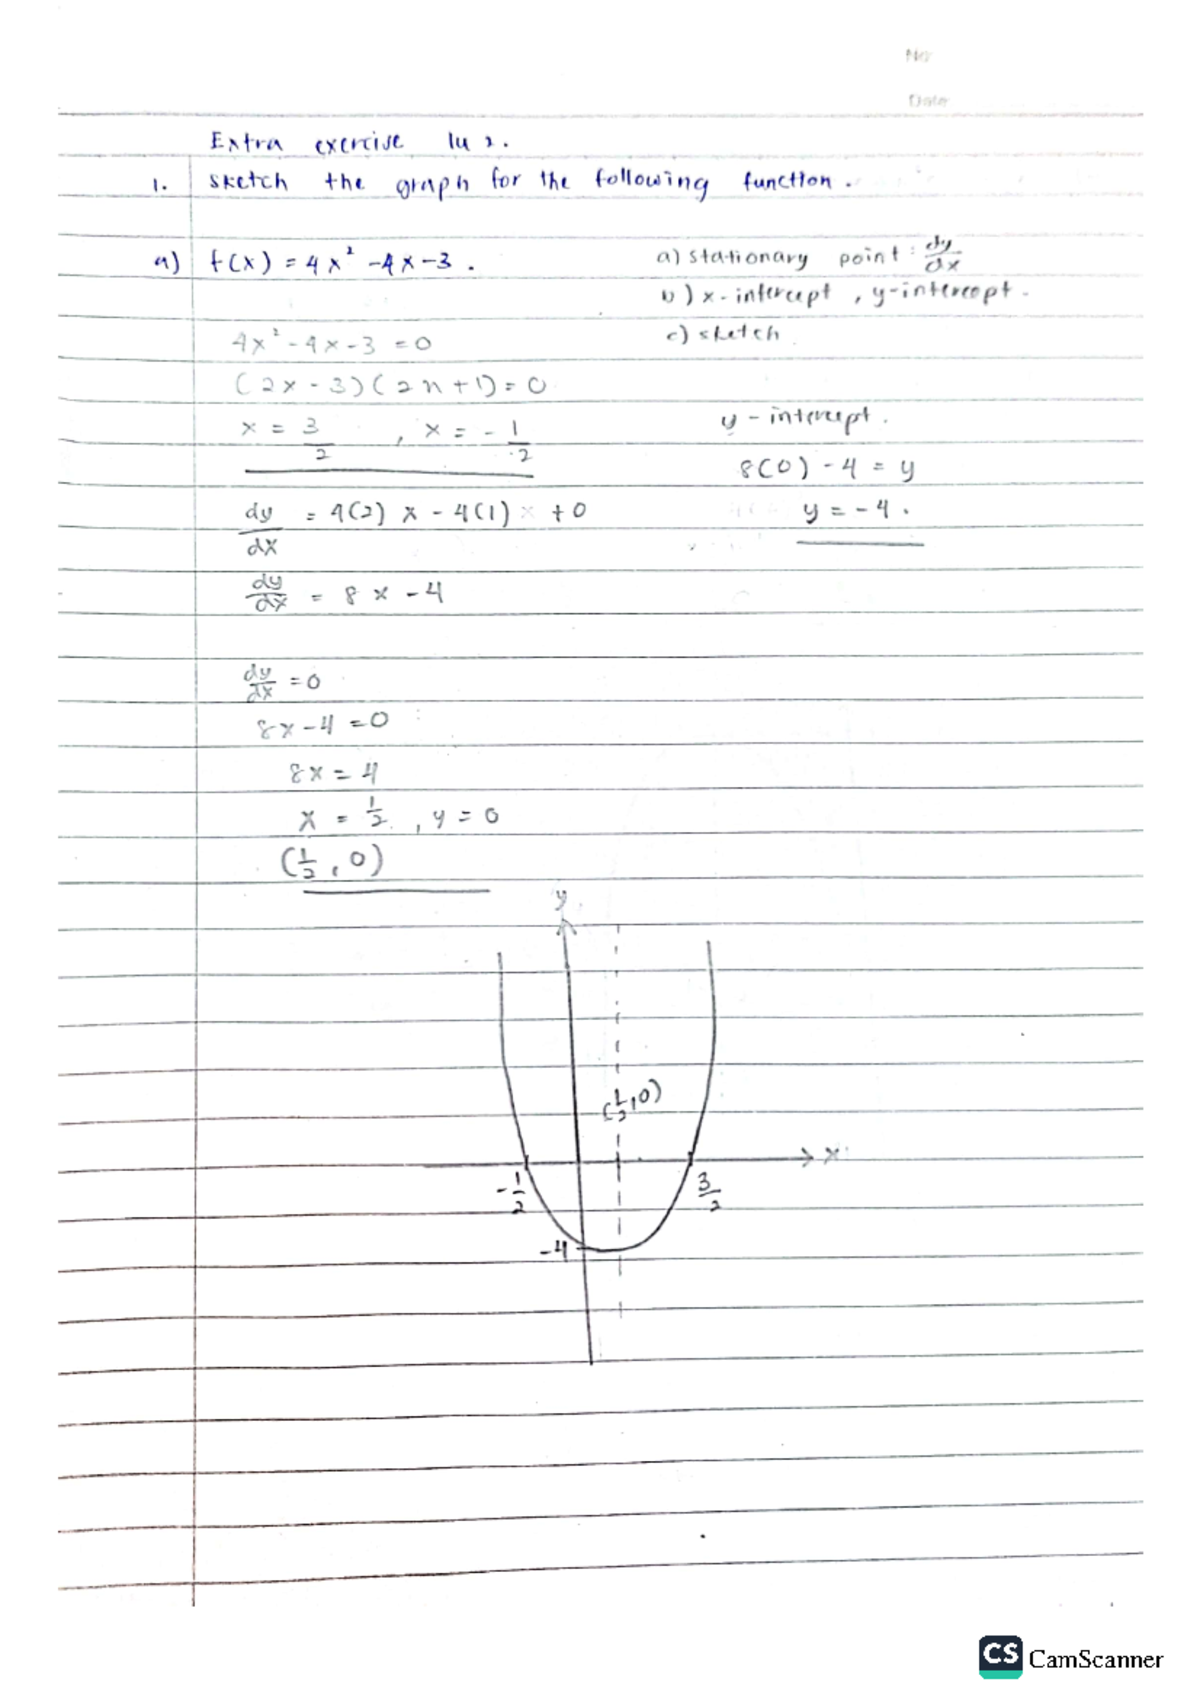 No
Date
Extra exercise lu 2.
1. sketch the graph for the following function.
a) f(x) = 4x² - 4x - 3.
a) stationary point : dy/dx
b) x-intercept, y-intercept.
c) sketch
4x² - 4x - 3 = 0
(2x - 3)(2x + 1) = 0
x = 3/2 , x = -1/2
y - intercept.
8(0) - 4 = y
y = -4.
dy/dx = 4(2)x - 4(1)x + 0
dy/dx = 8x - 4
dy/dx = 0
8x - 4 = 0
8x = 4
x = 1/2 , y = 0
(1/2, 0)
y
(1/2, 0)
x
-1/2
3/2
-4
CS CamScanner